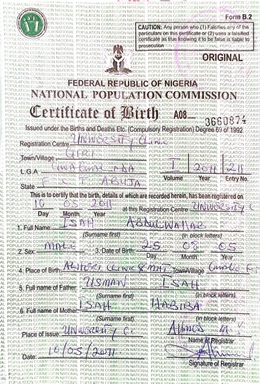 Form B.2
CAUTION: Any person who (1) Falsifies any of the particulars on this certificate or (2) uses a falsified certificate as true knowing it to be false is liable to prosecution
ORIGINAL
FEDERAL REPUBLIC OF NIGERIA
NATIONAL POPULATION COMMISSION
Certificate of Birth A08 3660874
Issued under the Births and Deaths Etc. (Compulsory Registration) Degree 69 of 1992
Registration Centre: University Clinic
Town/Village: GIRI
L.G.A 1 2011 211
State ABUJA Volume Year Entry No.
This is to certify that the birth, details of which are recorded herein, has been registered on
16 05 2011 at this Registration Centre University C
Day Month Year
1. Full Name: ISAH ABDULWAHAB
(Surname first) (in block letters)
2. Sex: MALE 3. Date of Birth: 25 09 05
Day Month Year
4. Place of Birth: Town/Village
5. Full name of Father: USMAN ISAH
(Surname first) (in block letters)
6. Full name of Mother: ISAH HABIBA
(Surname first) (in block letters)
Place of Issue: University C. Ahmed M. Y.
Name of Registrar
Date: 16/05/2011
Signature of Registrar